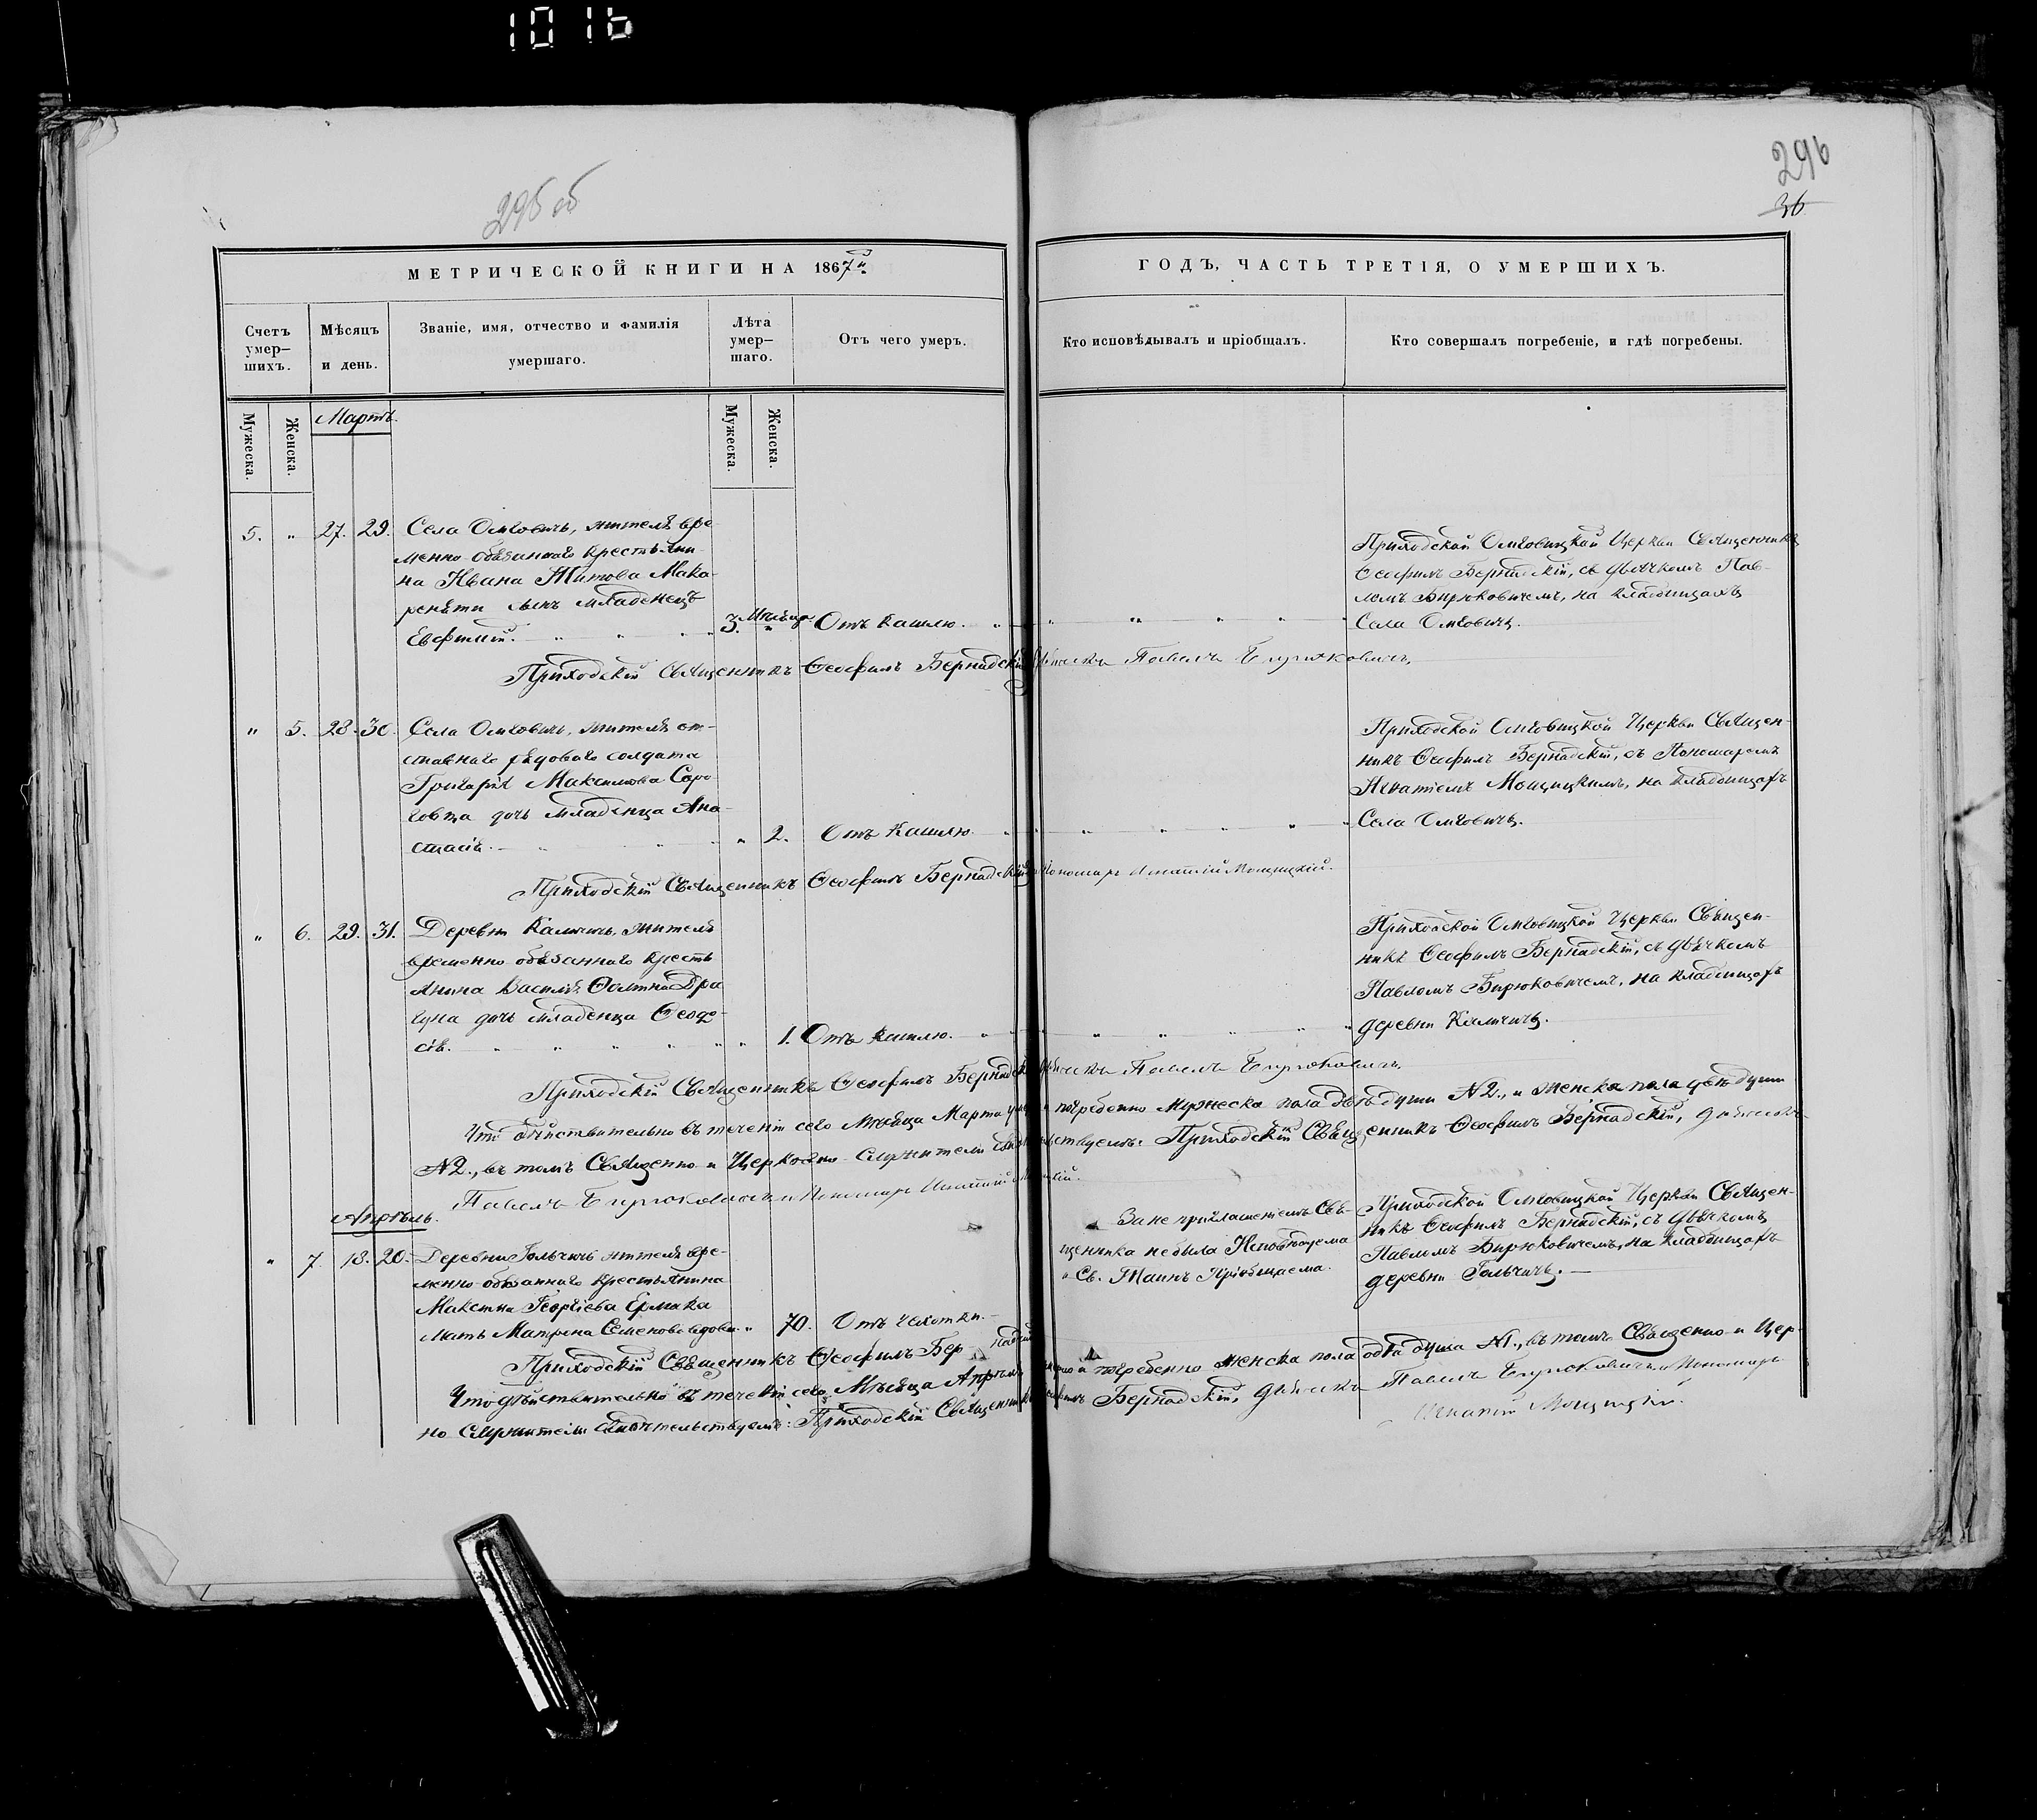 1016
295 об
296
36
МЕТРИЧЕСКОЙ КНИГИ НА 1867й
ГОДЪ, ЧАСТЬ ТРЕТІЯ, О УМЕРШИХЪ.
Счетъ умер-
шихъ.
Мѣсяцъ
и день.
Званіе, имя, отчество и фамилія
умершаго.
Лѣта
умер-
шаго.
Отъ чего умеръ.
Кто исповѣдывалъ и пріобщалъ.
Кто совершалъ погребеніе, и гдѣ погребены.
Мужеска.
Женска.
Мартъ.
Мужеска.
Женска.
5. " 27. 29. Села Омговичъ, жителя вре-
менно-обязаннаго крестьяни-
на Ивана Титова Мака-
сынъ младенецъ
Евфимій. 3. Мѣсяца Отъ кашлю.
Приходской Омговицкой Церкви Священникъ
Ѳеофилъ Бернадскій, съ дьячкомъ Пав-
ломъ Бирюковичемъ, на кладбищахъ
Села Омговичъ.
Приходскій Священникъ Ѳеофилъ Бернадскій Дьячекъ Павелъ Бирюковичъ.
" 5. 28. 30. Села Омговичъ, жителя от-
ставнаго рядового солдата
Григорія Максимова Соро-
дочь младенца Ана-
стасія. " 2. Отъ кашлю.
Приходской Омговицкой Церкви Священ-
никъ Ѳеофилъ Бернадскій, съ Пономаремъ
Игнатіемъ Мощицкимъ, на кладбищахъ
Села Омговичъ.
Приходскій Священникъ Ѳеофилъ Бернадскій Пономарь Игнатій Мощицкій.
" 6. 29. 31. Деревни Калчичъ, жителя
временно-обязаннаго кресть-
янина Василія Фомина Дра-
гуна дочь младенца Ѳеодо-
сія. " 1. Отъ кашлю.
Приходской Омговицкой Церкви Священ-
никъ Ѳеофилъ Бернадскій, съ дьячкомъ
Павломъ Бирюковичемъ, на кладбищахъ
деревни Калчичъ.
Приходскій Священникъ Ѳеофилъ Бернадскій Дьячекъ Павелъ Бирюковичъ.
Что дѣйствительно въ теченіи сего Мѣсяца Марта погребенно Мужеска пола двѣ души N2., и Женска пола двѣ души
N2., въ томъ Священно и Церковно-служители свидѣтельствуемъ: Приходскій Священникъ Ѳеофилъ Бернадскій, дьячекъ
Павелъ Бирюковичъ и Пономарь Игнатій Мощицкій.
Апрѣль.
" 7. 18. 20. Деревни Гольчичъ жителя вре-
менно-обязаннаго крестьянина
Максима Георгіева Ермака
мать Матрена Семенова вдова. " 70. Отъ чахотки.
За не приглашеніемъ Свя-
щенника не была Исповѣдуема
и Св. Таинъ Пріобщаема.
Приходской Омговицкой Церкви Священ-
никъ Ѳеофилъ Бернадскій, съ дьячкомъ
Павломъ Бирюковичемъ, на кладбищахъ
деревни Гольчичъ.
Приходскій Священникъ Ѳеофилъ Бернадскій
Что дѣйствительно въ теченіи сего Мѣсяца Апрѣля погребенно женска пола одна душа N1., въ томъ Священно и Цер-
но служители свидѣтельствуемъ: Приходскій Священникъ Ѳеофилъ Бернадскій, дьячекъ Павелъ Бирюковичъ и Пономарь
Игнатій Мощицкій.